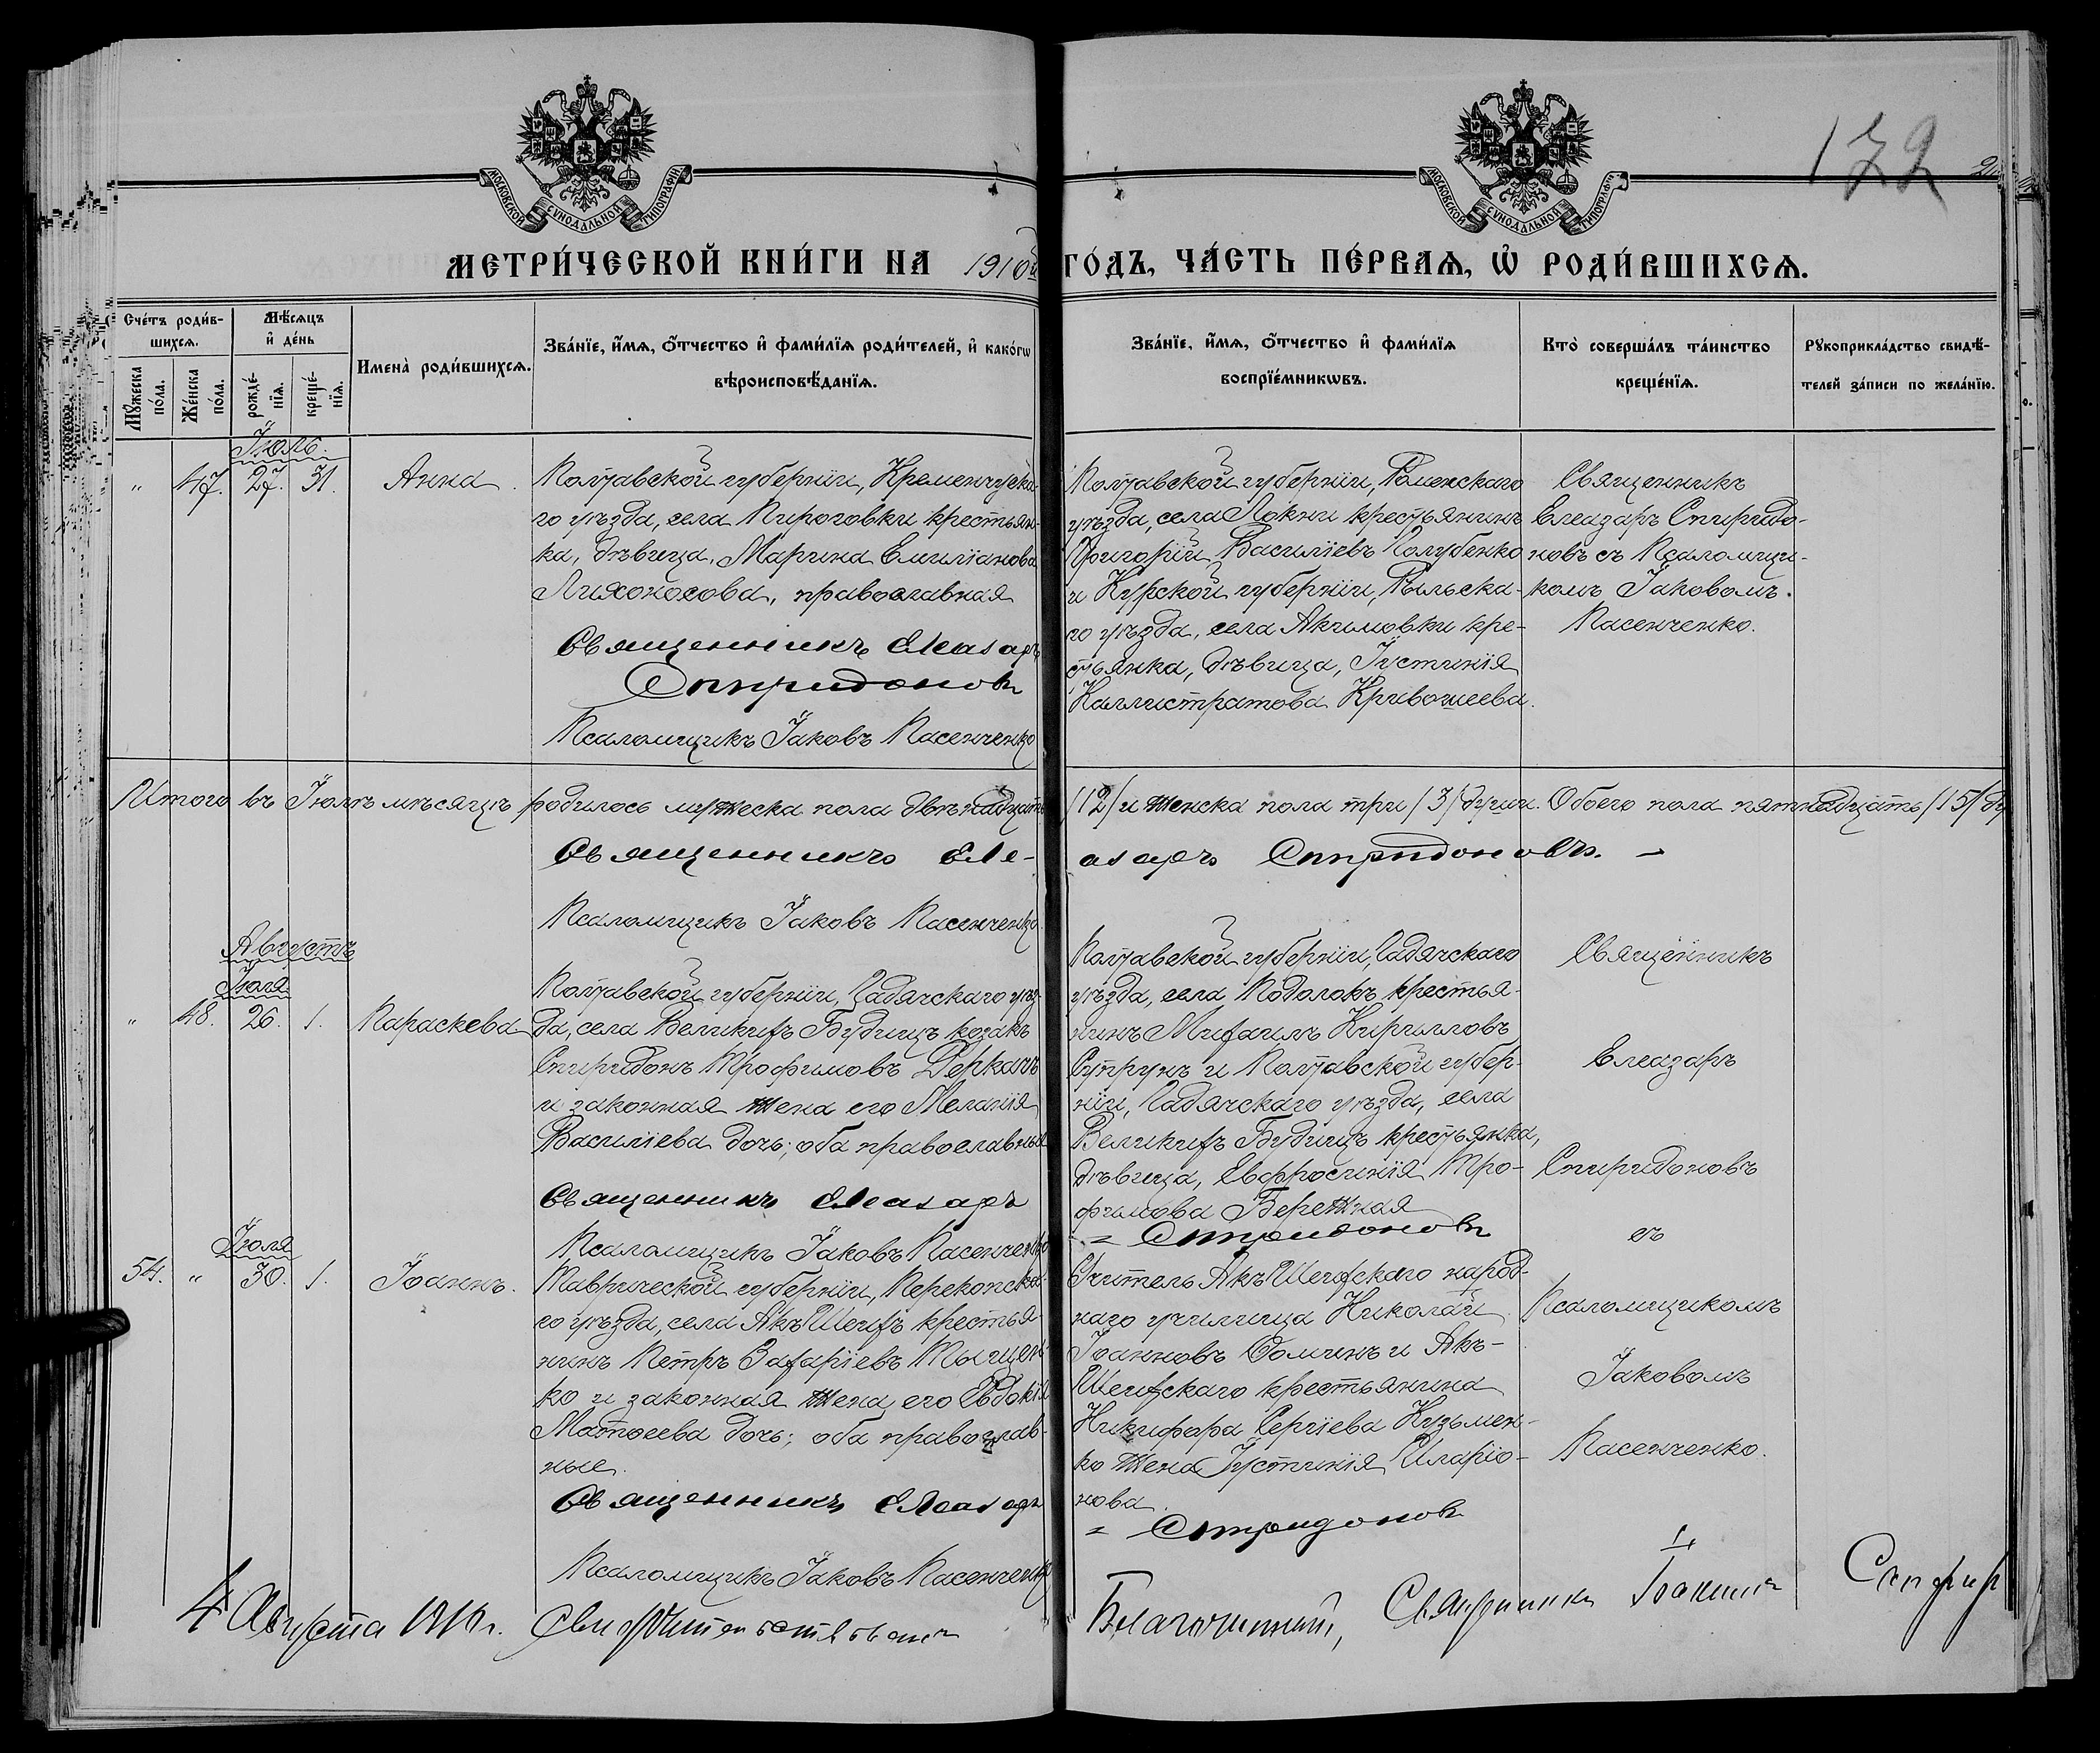 МОСКОВСКОЙ СѴНОДАЛЬНОЙ ТИПОГРАФІИ
МОСКОВСКОЙ СѴНОДАЛЬНОЙ ТИПОГРАФІИ
172
МЕТРИ́ЧЕСКОЙ КНИ́ГИ НА 1910й ГО́ДЪ, ЧА́СТЬ ПЕ́РВАѦ, Ѡ҆ РОДИ́ВШИХСѦ.
Сче́тъ роди́в-
шихсѧ.
Мꙋ́жеска
по́ла.
Же́нска
по́ла.
Мѣ́сѧцъ
и҆ де́нь
рожде́-
нїѧ.
креще́-
нїѧ.
Имена̀ роди́вшихсѧ.
Зва́нїе, и҆́мѧ, ѻ҆́тчество и҆ фами́лїѧ роди́телей, и҆ како́гѡ
вѣроисповѣ́данїѧ.
Зва́нїе, и҆́мѧ, ѻ҆́тчество и҆ фами́лїѧ
воспрїе́мникѡвъ.
Кто̀ соверша́лъ та́инство
креще́нїѧ.
Рꙋкоприкла́дство свидѣ́-
телей за́писи по жела́нїю.
Іюль.
" 47. 27. 31. Анна.
Полтавской губерніи, Кременчугска-
го уѣзда, села Пироговки крестьян-
ка, дѣвица, Марина Емиліанова
Лихоносова, православная
Священникъ Елеазаръ
Спиридоновъ
Псаломщикъ Іаковъ Пасенченко
Полтавской губерніи, Роменскаго
уѣзда, села Локни крестьянинъ
Григорій Василіевъ Голубенко
и Курской губерніи, Рыльска-
го уѣзда, села Акимовки кре-
стьянка, дѣвица, Іустинія
Каллистратова Кривошеева.
Священникъ
Елеазаръ Спиридо-
новъ съ Псаломщи-
комъ Іаковомъ
Пасенченко.
Итого въ Іюлѣ мѣсяцѣ родилось мужеска пола двѣнадцать /12/ и женска пола три /3/ души. Обоего пола пятнадцать /15/ ду
Священникъ Еле-
азаръ Спиридоновъ. –
Псаломщикъ Іаковъ Пасенченко.
Августъ
Іюля
" 48. 26. 1. Параскева
Полтавской губерніи, Гадячскаго уѣз-
да, села Великихъ Будищъ козакъ
Спиридонъ Трофимовъ Деркачъ
и законная жена его Меланія
Василіева дочь; оба православные
Священникъ Елеазаръ
Псаломщикъ Іаковъ Пасенченко
Полтавской губерніи, Гадячскаго
уѣзда, села Подолокъ крестья-
нинъ Михаилъ Кирилловъ
Супрунъ и Полтавской губер-
ніи, Гадячскаго уѣзда, села
Великихъ Будищъ крестьянка,
дѣвица, Евфросинія Тро-
фимова Бережная
= Спиридоновъ
Священникъ
Елеазаръ
Спиридоновъ
съ
Псаломщикомъ
Іаковомъ
Пасенченко.
Іюля
54. " 30. 1. Іоаннъ.
Таврической губерніи, Перекопска-
го уѣзда, села Акъ Шеихъ крестья-
нинъ Петръ Захаріевъ Тыщен-
ко и законная жена его Евдокія
Матѳеева дочь; оба православ-
ные.
Священникъ Елеазаръ
Псаломщикъ Іаковъ Пасенченко
Учитель Акъ Шеихскаго народ-
наго училища Николай
Іоанновъ Ѳоминъ и Акъ-
Шеихскаго крестьянина
Никифора Сергіева Кузьмен-
ко жена Іустинія Иларіо-
нова.
= Спиридоновъ
4 Августа 1910 г. Свидѣтельствовалъ
Благочинный, Священникъ Іоакимъ